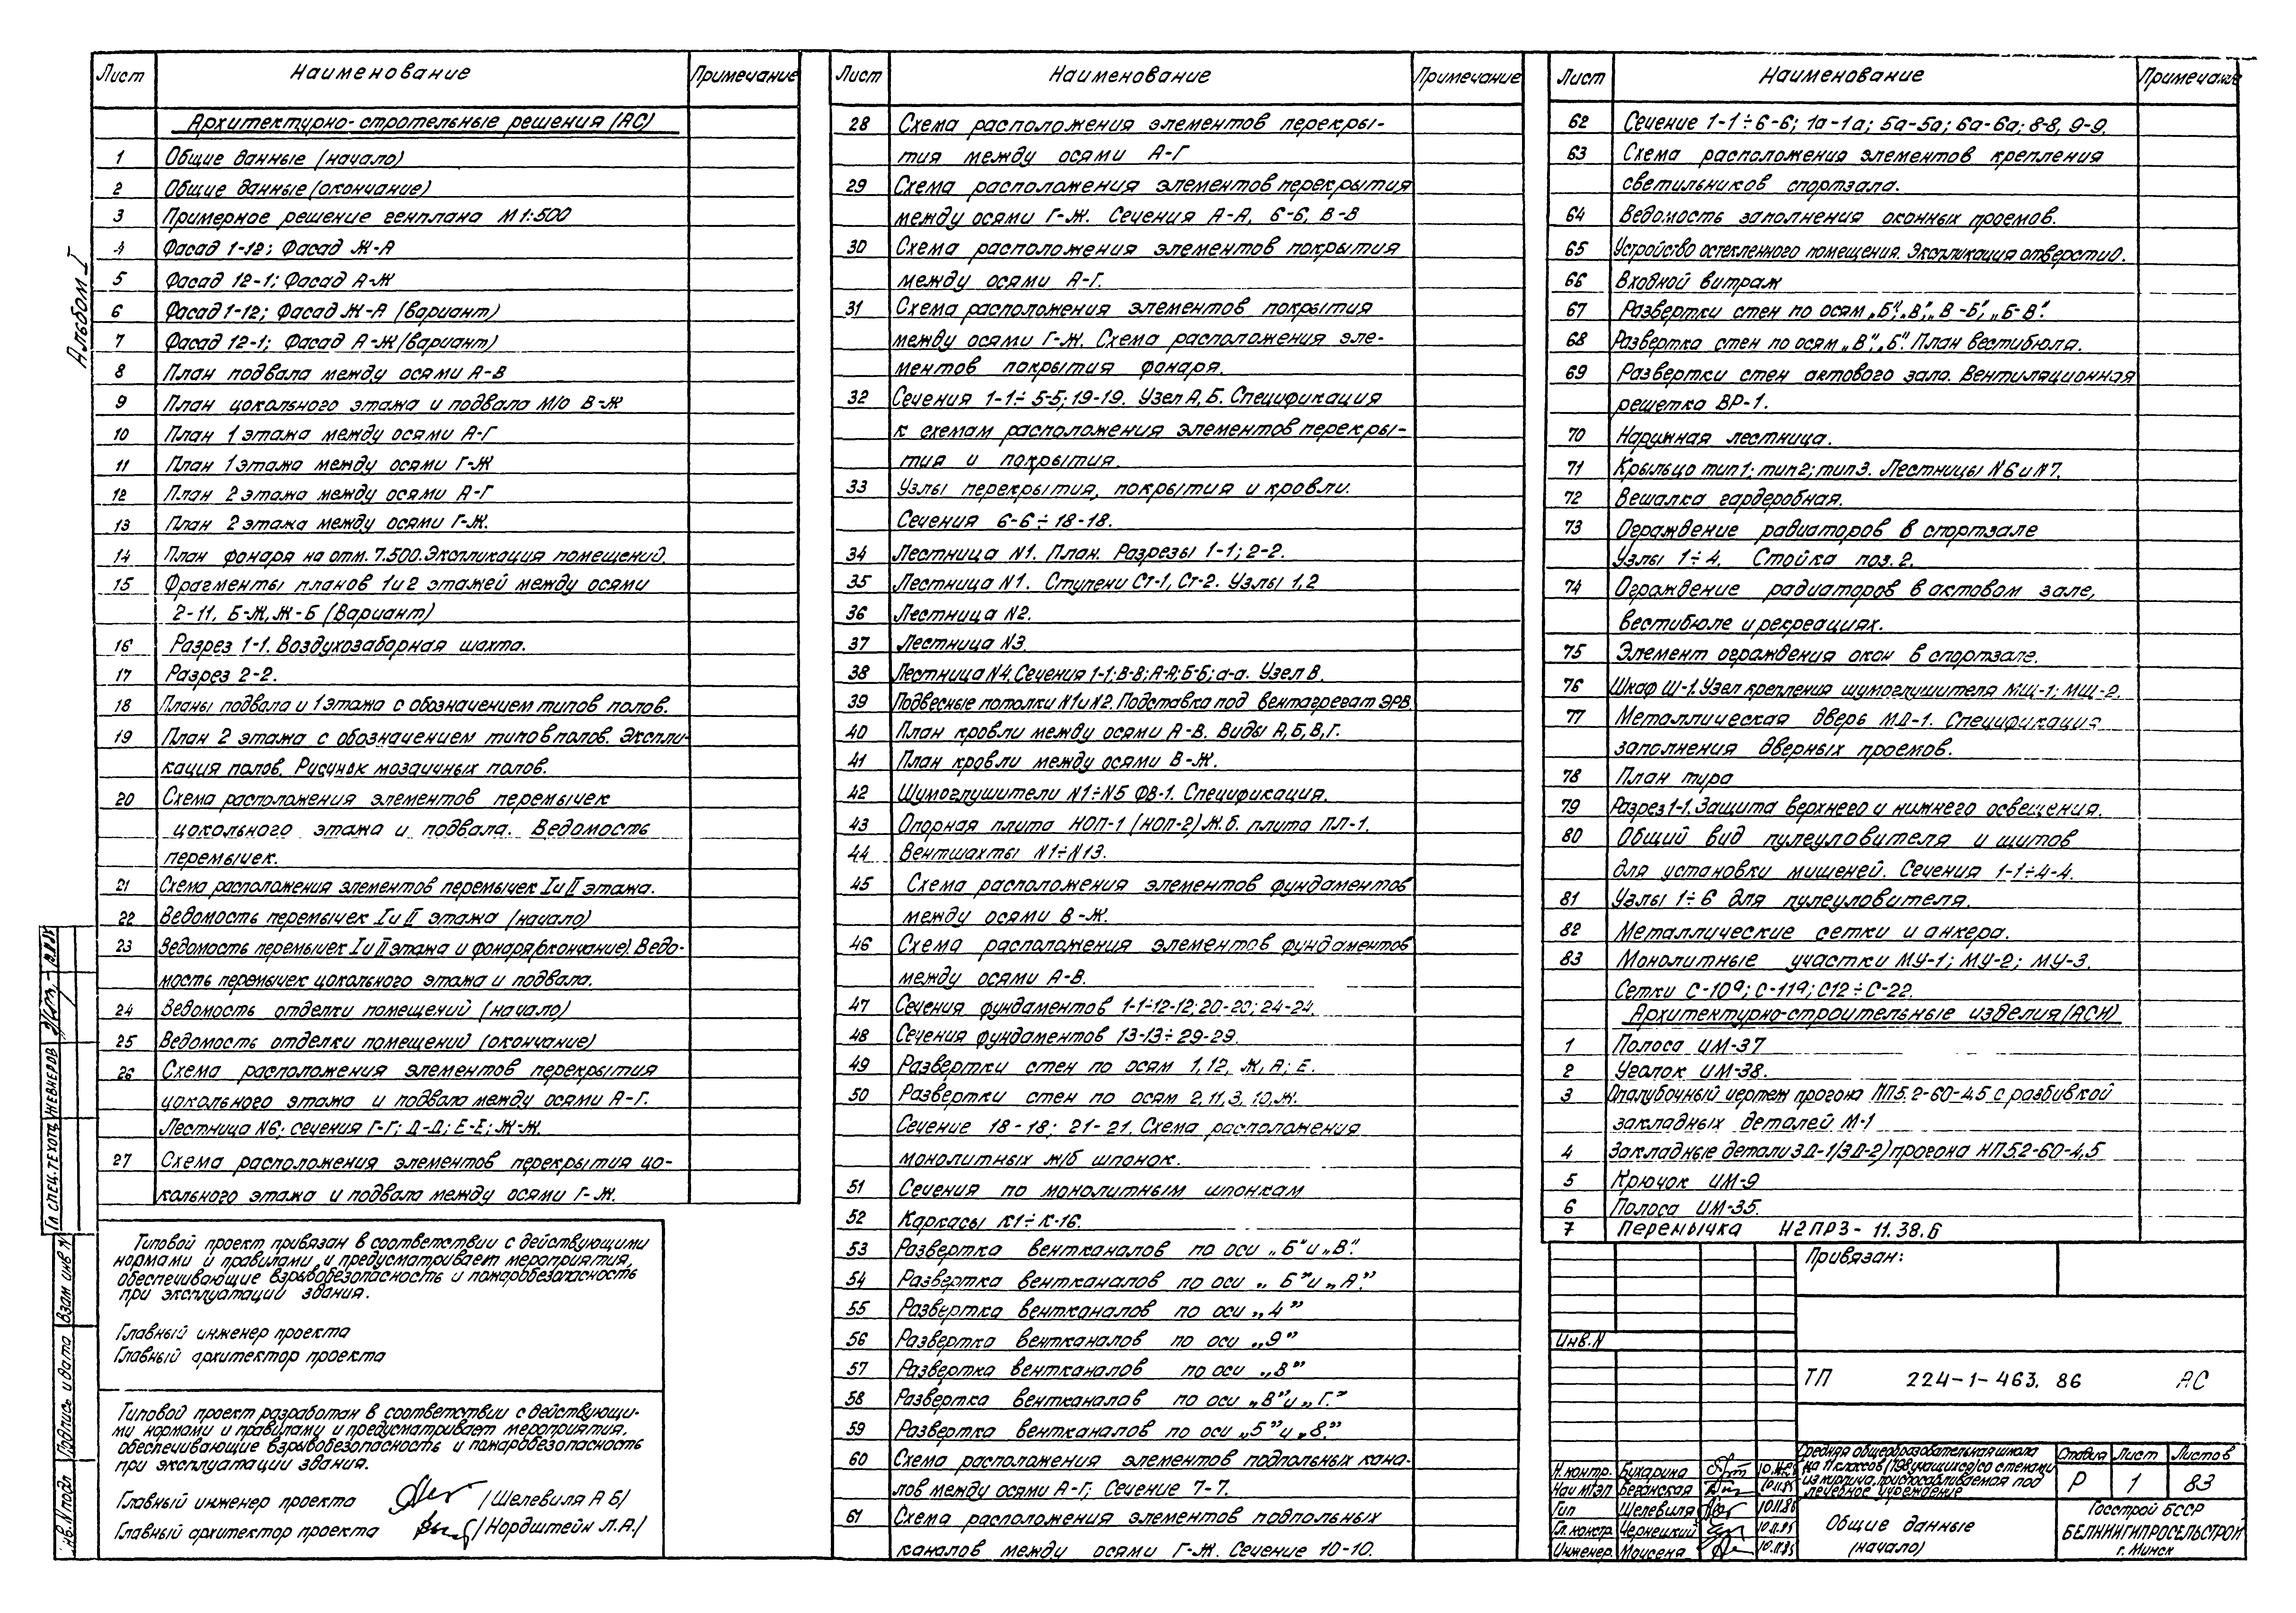 Альбом I
Лист Наименование Примечание
Архитектурно-стротельные решения (АС)
1 Общие данные (начало)
2 Общие данные (окончание)
3 Примерное решение генплана М 1:500
4 Фасад 1-12; Фасад Ж-А
5 Фасад 12-1; Фасад А-Ж
6 Фасад 1-12; Фасад Ж-А (вариант)
7 Фасад 12-1; Фасад А-Ж (вариант)
8 План подвала между осями А-В
9 План цокольного этажа и подвала м/о В-Ж
10 План 1 этажа между осями А-Г
11 План 1 этажа между осями Г-Ж
12 План 2 этажа между осями А-Г
13 План 2 этажа между осями Г-Ж.
14 План фонаря на отм. 7.500. Экспликация помещений.
15 Фрагменты планов 1 и 2 этажей между осями
2-11, Б-Ж, Ж-Б (Вариант)
16 Разрез 1-1. Воздухозаборная шахта.
17 Разрез 2-2.
18 Планы подвала и 1 этажа с обозначением типов полов.
19 План 2 этажа с обозначением типов полов. Экспли-
кация полов. Рисунок мозаичных полов.
20 Схема расположения элементов перемычек
цокольного этажа и подвала. Ведомость
перемычек.
21 Схема расположения элементов перемычек I и II этажа.
22 Ведомость перемычек I и II этажа (начало)
23 Ведомость перемычек I и II этажа и фонаря (окончание). Ведо-
мость перемычек цокольного этажа и подвала.
24 Ведомость отделки помещений (начало)
25 Ведомость отделки помещений (окончание)
26 Схема расположения элементов перекрытия
цокольного этажа и подвала между осями А-Г.
Лестница N6; сечения Г-Г; Д-Д; Е-Е; Ж-Ж.
27 Схема расположения элементов перекрытия цо-
кольного этажа и подвала между осями Г-Ж.
Типовой проект привязан в соответствии с действующими
нормами и правилами и предусматривает мероприятия,
обеспечивающие взрывобезопасность и пожаробезопасность
при эксплуатации здания.
Главный инженер проекта
Главный архитектор проекта
Типовой проект разработан в соответствии с действующи-
ми нормами и правилами и предусматривает мероприятия,
обеспечивающие взрывобезопасность и пожаробезопасность
при эксплуатации здания.
Главный инженер проекта /Шелевиля А Б/
Главный архитектор проекта /Нордштейн Л.А./
Лист Наименование Примечание
28 Схема расположения элементов перекры-
тия между осями А-Г
29 Схема расположения элементов перекрытия
между осями Г-Ж. Сечения А-А, Б-Б, В-В
30 Схема расположения элементов покрытия
между осями А-Г.
31 Схема расположения элементов покрытия
между осями Г-Ж. Схема расположения эле-
ментов покрытия фонаря.
32 Сечения 1-1÷5-5; 19-19. Узел А, Б. Спецификация
к схемам расположения элементов перекры-
тия и покрытия.
33 Узлы перекрытия, покрытия и кровли.
Сечения 6-6÷18-18.
34 Лестница N1. План. Разрезы 1-1; 2-2.
35 Лестница N1. Ступени Ст-1, Ст-2. Узлы 1,2
36 Лестница N2.
37 Лестница N3.
38 Лестница N4. Сечения 1-1; В-В; А-А; Б-Б; а-а. Узел В.
39 Подвесные потолки N1 и N2. Подставка под вентагрегат ЭРВ
40 План кровли между осями А-В. Виды А, Б, В, Г.
41 План кровли между осями В-Ж.
42 Шумоглушители N1÷N5 ФВ-1. Спецификация.
43 Опорная плита НОП-1 (НОП-2) Ж.б. плита ПЛ-1.
44 Вентшахты N1÷N13.
45 Схема расположения элементов фундаментов
между осями В-Ж.
46 Схема расположения элементов фундаментов
между осями А-В.
47 Сечения фундаментов 1-1÷12-12; 20-20; 24-24.
48 Сечения фундаментов 13-13÷29-29.
49 Развертки стен по осям 1, 12, Ж, А; Е.
50 Развертки стен по осям 2, 11, 3, 10, Ж.
Сечение 18-18; 21-21. Схема расположения
монолитных ж/б шпонок.
51 Сечения по монолитным шпонкам
52 Каркасы К1÷К-16.
53 Развертка вентканалов по оси „Б" и „В".
54 Развертка вентканалов по оси „Б" и „А".
55 Развертка вентканалов по оси „4"
56 Развертка вентканалов по оси „9"
57 Развертка вентканалов по оси „В"
58 Развертка вентканалов по оси „В" и „Г."
59 Развертка вентканалов по оси „5" и „8."
60 Схема расположения элементов подпольных кана-
лов между осями А-Г; Сечение 7-7.
61 Схема расположения элементов подпольных
каналов между осями Г-Ж. Сечение 10-10.
Лист Наименование Примечание
62 Сечение 1-1÷6-6; 1а-1а; 5а-5а; 6а-6а; 8-8, 9-9.
63 Схема расположения элементов крепления
светильников спортзала.
64 Ведомость заполнения оконных проемов.
65 Устройство остекленного помещения. Экспликация отверстий.
66 Входной витраж
67 Развертки стен по осям „Б", „В", „В-Б", „Б-В".
68 Развертка стен по осям „В", „Б". План вестибюля.
69 Развертки стен актового зала. Вентиляционная
решетка ВР-1.
70 Наружная лестница.
71 Крыльцо тип 1; тип 2; тип 3. Лестницы N6 и N7.
72 Вешалка гардеробная.
73 Ограждение радиаторов в спортзале
Узлы 1÷4. Стойка поз. 2.
74 Ограждение радиаторов в актовом зале,
вестибюле и рекреациях.
75 Элемент ограждения окон в спортзале.
76 Шкаф Ш-1. Узел крепления шумоглушителя МЩ-1; МЩ-2.
77 Металлическая дверь МД-1. Спецификация
заполнения дверных проемов.
78 План тира
79 Разрез 1-1. Защита верхнего и нижнего освещения.
80 Общий вид пулеуловителя и щитов
для установки мишеней. Сечения 1-1÷4-4.
81 Узлы 1÷6 для пулеуловителя.
82 Металлические сетки и анкера.
83 Монолитные участки МУ-1; МУ-2; МУ-3.
Сетки С-10а; С-11а; С12÷С-22.
Архитектурно-строительные изделия (АСИ)
1 Полоса ИМ-37
2 Уголок ИМ-38.
3 Опалубочный чертеж прогона ПП5.2-60-4.5 с разбивкой
закладных деталей М-1
4 Закладные детали ЗД-1 (ЗД-2) прогона НП5.2-60-4,5
5 Крючок ИМ-9
6 Полоса ИМ-35.
7 Перемычка Н2ПР3-11.38.Б
Привязан:
Инв. N
ТП 224-1-463.86 АС
Н.контр. Бухарина
Нач МТЭП Беганская
Гип Шелевиля 10.11.86
Гл. констр. Чернецкий 10.11.85
Инженер. Моисеня 10.11.85
Средняя общеобразовательная школа
на 11 классов (198 учащихся) со стенами
из кирпича, приспосабливаемая под
лечебное учреждение
Стадия Лист Листов
Р 1 83
Общие данные
(начало)
Госстрой БССР
БЕЛНИИГИПРОСЕЛЬСТРОЙ
г. Минск
Гл СПЕЦ. ТЕХОТД ЖЕВНЕРОВ
Взам инв N
Подпись и дата
Инв. N подл